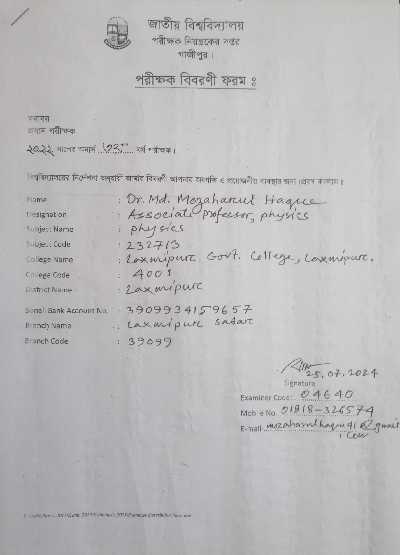 জাতীয় বিশ্ববিদ্যালয়
পরীক্ষক নিয়ন্ত্রকের দপ্তর
গাজীপুর।
পরীক্ষক বিবরণী ফরম :
বরাবর
প্রধান পরীক্ষক
২০২২ সালের অনার্স ৩য় বর্ষ পরীক্ষা।
বিশ্ববিদ্যালয়ের নির্দেশনা অনুযায়ী আমার বিবরণী আপনার অবগতি ও প্রয়োজনীয় ব্যবস্থার জন্য প্রেরণ করলাম।
Name : Dr. Md. Mozaharul Haque
Designation : Associate Professor, physics
Subject Name : physics
Subject Code : 232713
College Name : Laxmipur Govt. College, Laxmipur.
College Code : 4001
District Name : Laxmipur
Sonali Bank Account No. : 3909934159657
Branch Name : Laxmipur Sadar
Branch Code : 39099
25.07.2024
Signature
Examiner Code: 04640
Mobile No. 01818-326574
E-mail: